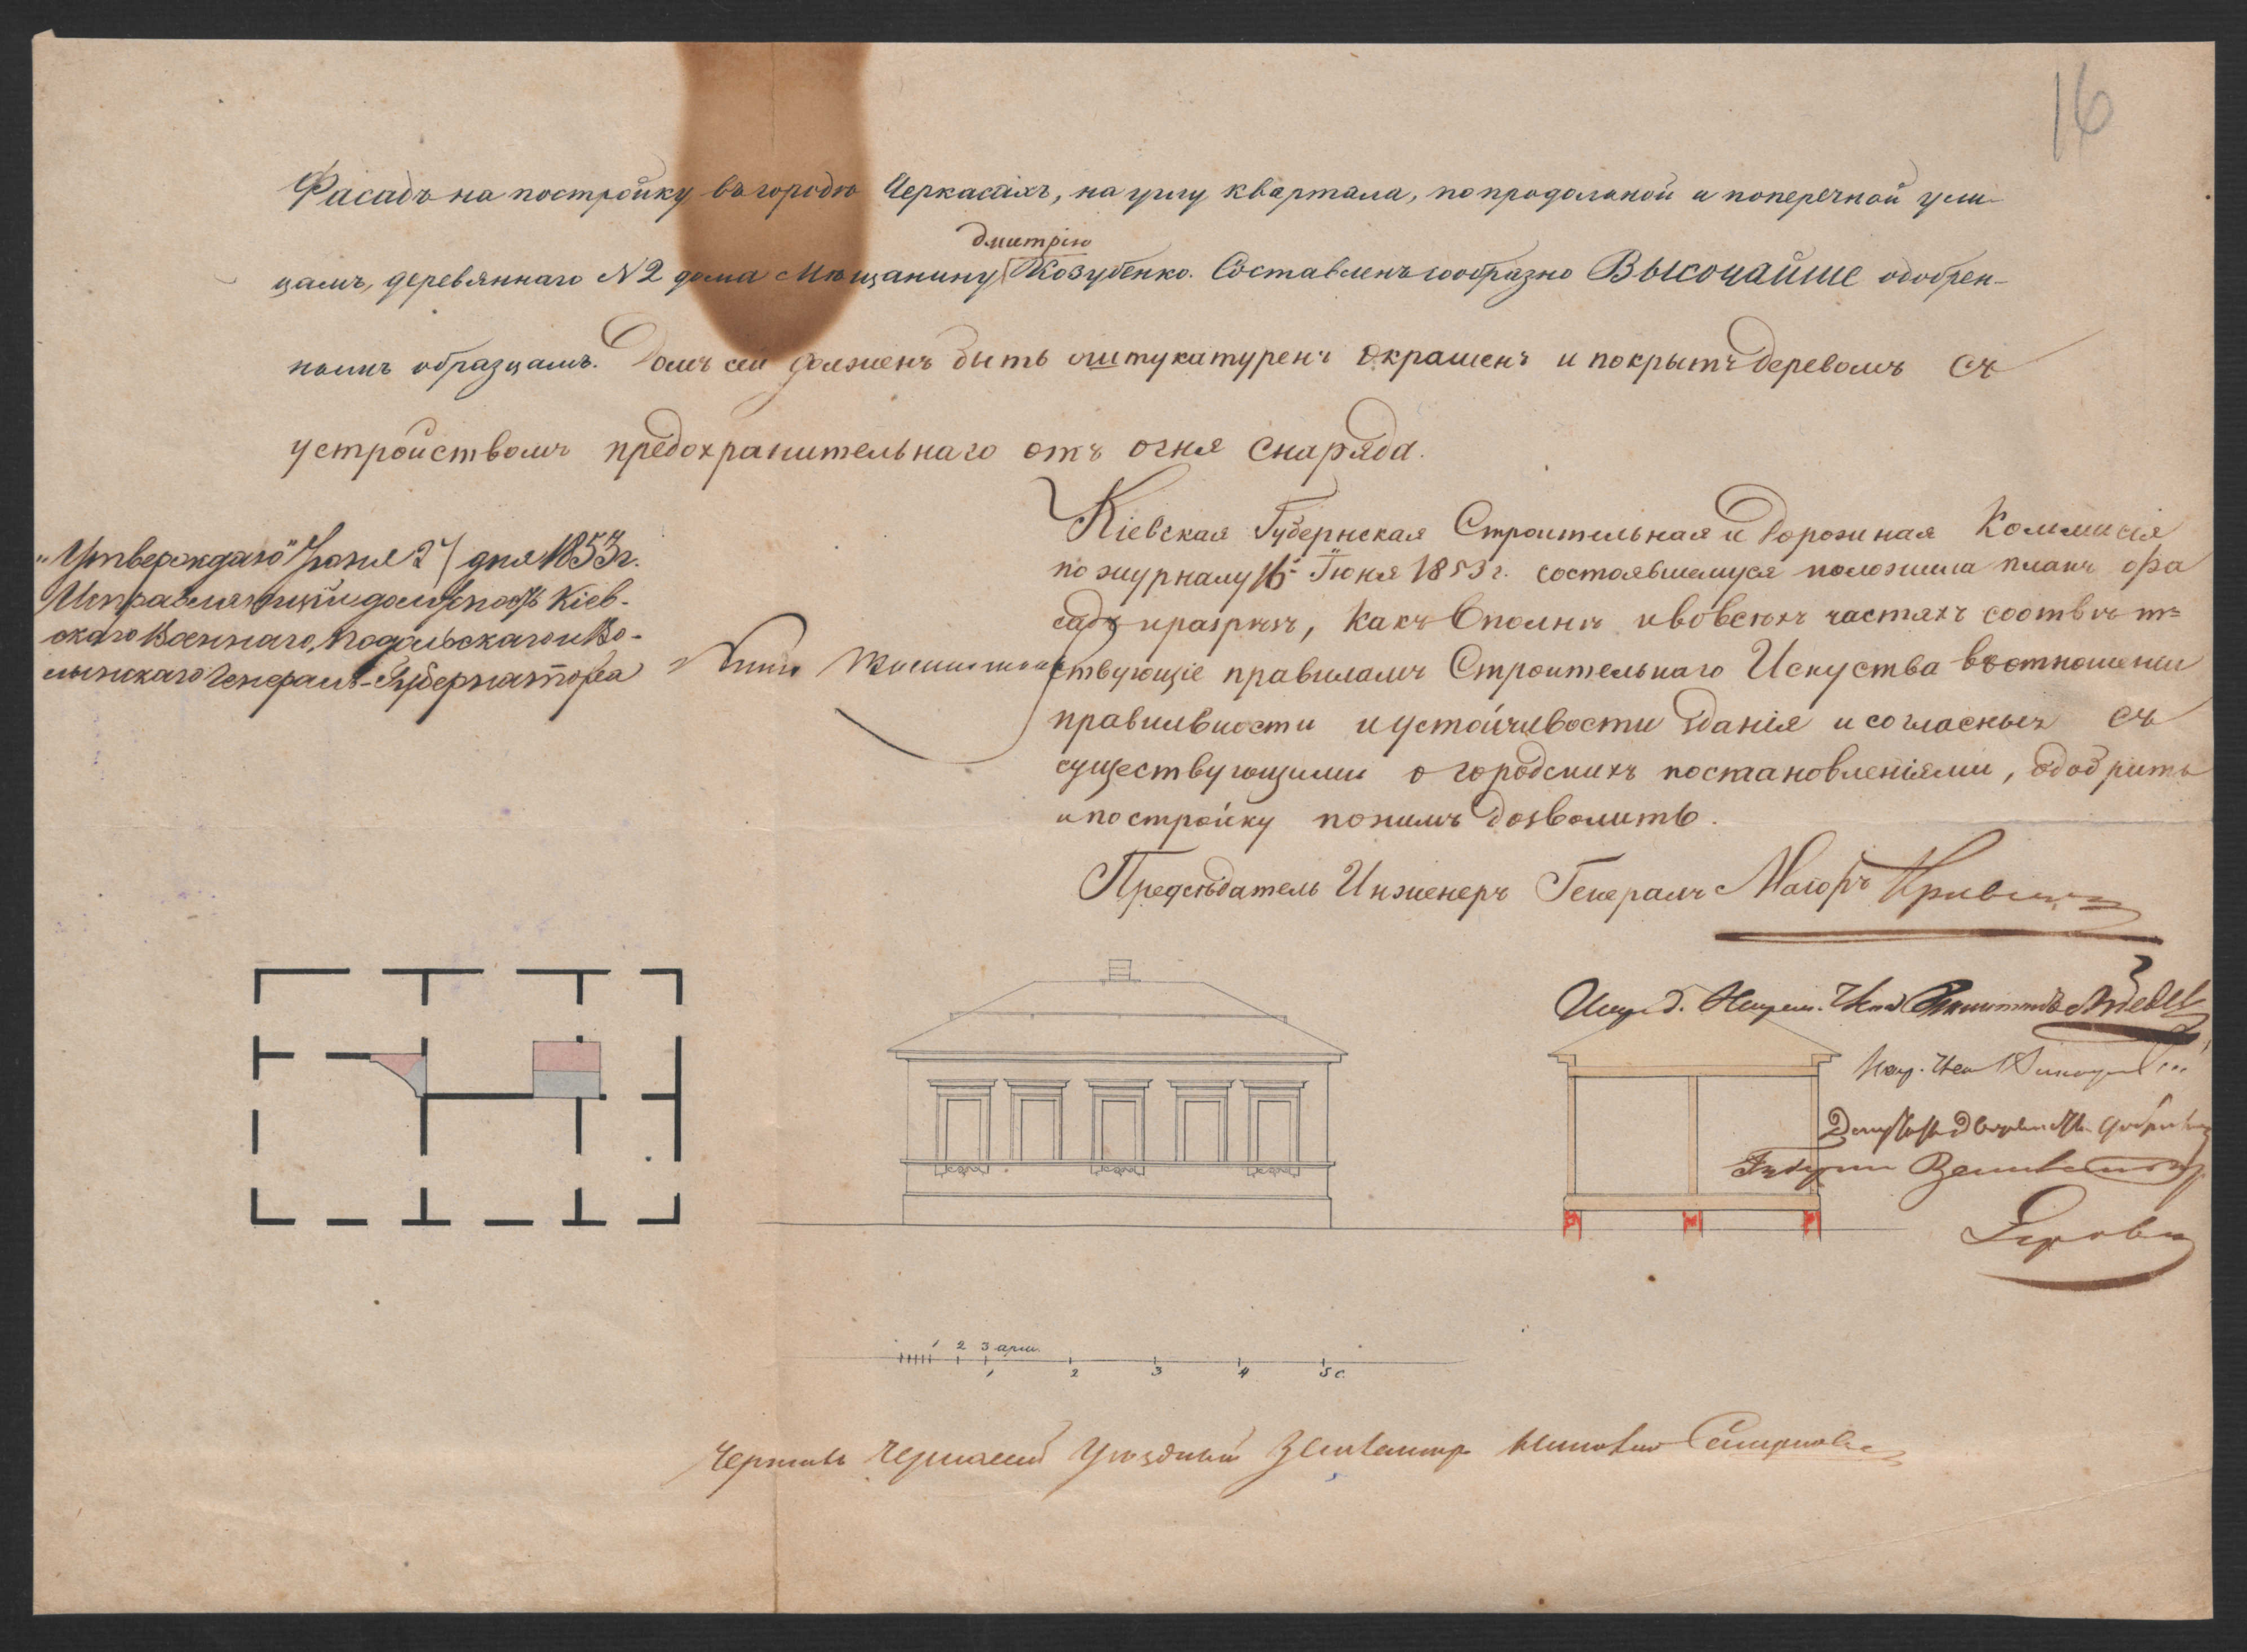 16
Фасадъ на постройку въ городѣ Черкасахъ, на углу квартала, по продольной и поперечной ули-
цамъ, деревяннаго N 2 дома Мѣщанину Козубенко. Составленъ сообразно Высочайше одобрен-
Дмитрію
нымъ образцамъ. Домъ сей долженъ быть оштукатуренъ окрашенъ и покрытъ деревомъ съ
устройствомъ предохранительнаго отъ огня снаряда.
„Утверждаю" Іюня 27 дня 1853 г.
Исправляющій должность Кіев-
скаго Военнаго, Подольскаго и Во-
лынскаго Генералъ-Губернатора
Кіевская Губернская Строительная и Дорожная Коммисія
по журналу 16 Іюня 1853 г. состоявшемуся положила планъ фа
садъ и разрѣзъ, какъ вполнѣ и во всѣхъ частяхъ соотвѣт=
ствующіе правиламъ Строительнаго Искуства въ отношеніи
правильности и устойчивости зданія и согласныхъ съ
существующими о городскихъ постановленіями, одобрить
и постройку по нимъ дозволить.
Предсѣдатель Инженеръ Генералъ Маіоръ
1 2 3 арш.
1 2 3 4 5 с.
Чертилъ Уѣздный Землемѣръ